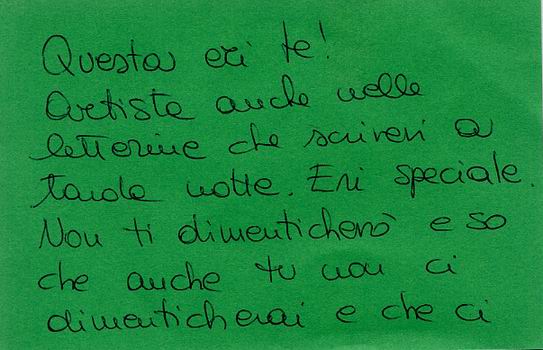 Questa eri te!
Artista anche nelle
letterine che scrivevi a
tarda notte. Eri speciale.
Non ti dimenticherò e so
che anche tu non ci
dimenticherai e che ci